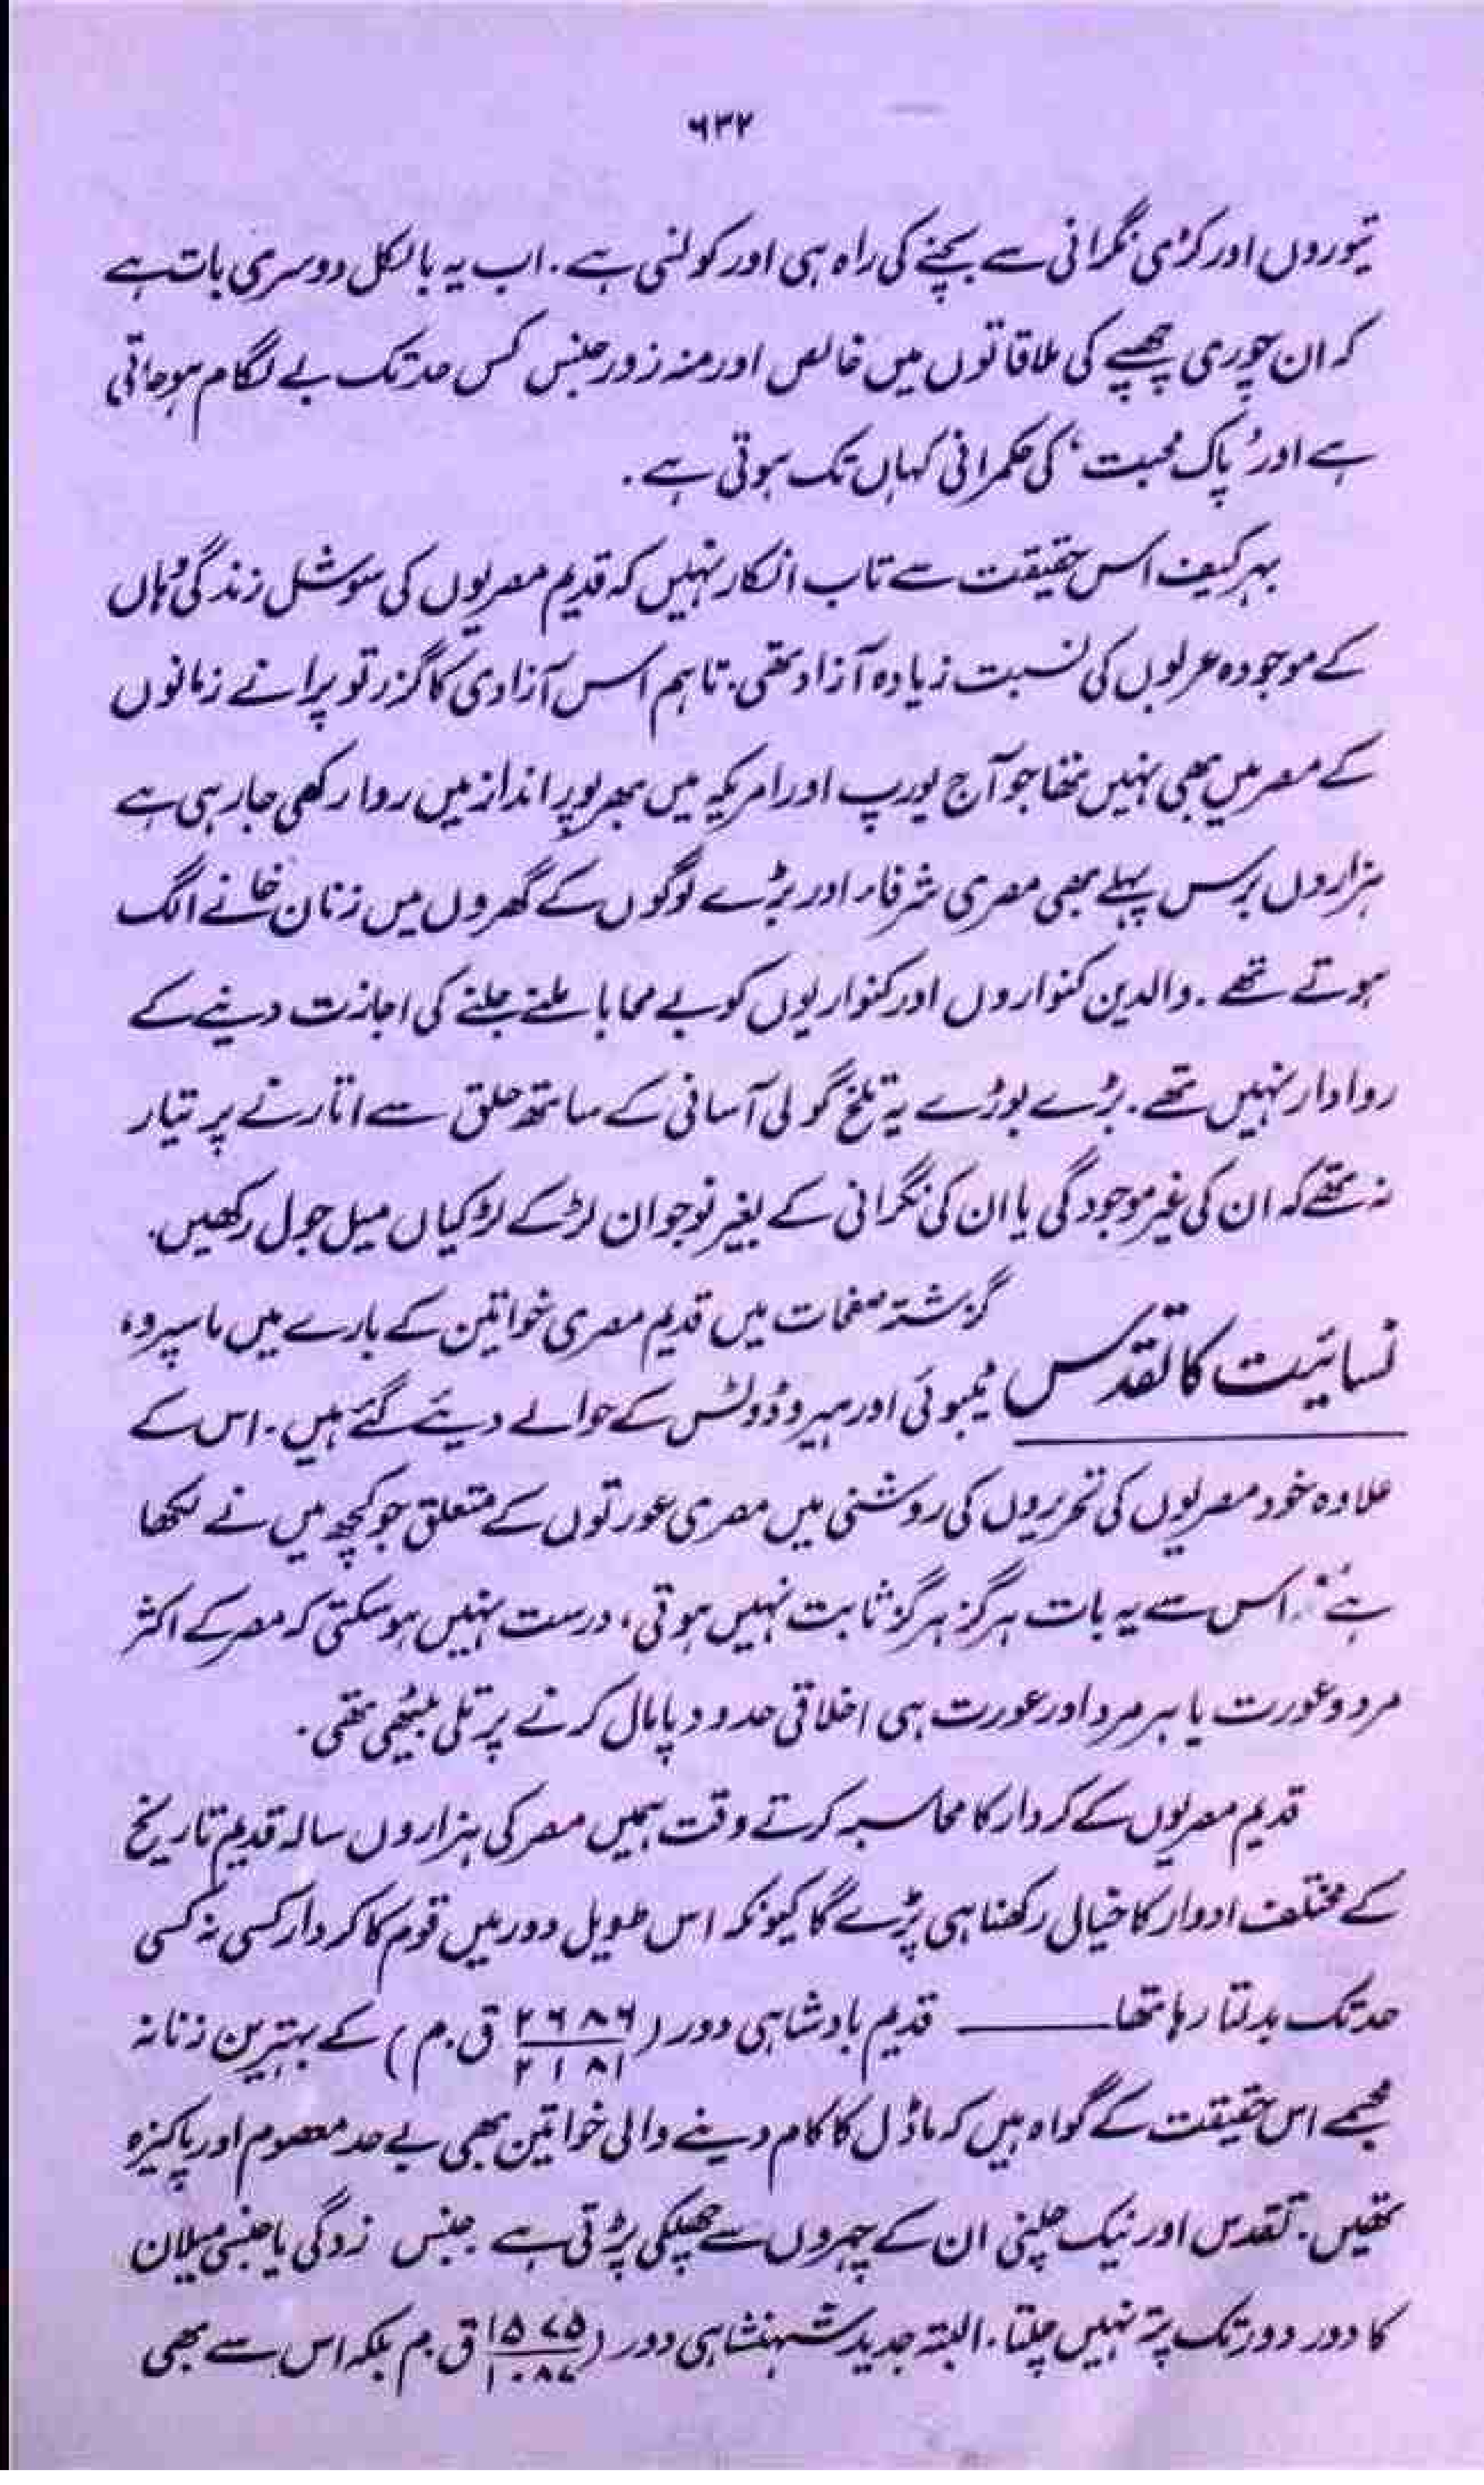 ۶۳۲
تیوروں اور کڑی نگرانی سے بچنے کی راہ ہی اور کونسی ہے۔ اب یہ بالکل دوسری بات ہے
کہ ان چوری چھپے کی ملاقاتوں میں خالص اور منہ زور جنس کس حد تک بے لگام ہو جاتی
ہے اور ’پاک محبت‘ کی حکمرانی کہاں تک ہوتی ہے۔
بہر کیف اس حقیقت سے تاب انکار نہیں کہ قدیم مصریوں کی سوشل زندگی وہاں
کے موجودہ عربوں کی نسبت زیادہ آزاد تھی۔ تاہم اس آزادی کا گزر تو پرانے زمانوں
کے مصر میں بھی نہیں تھا جو آج یورپ اور امریکہ میں بھرپور انداز میں روا رکھی جا رہی ہے
ہزاروں برس پہلے بھی مصری شرفاء اور بڑے لوگوں کے گھروں میں زنان خانے الگ
ہوتے تھے۔ والدین کنواروں اور کنواریوں کو بے محابا ملنے جلنے کی اجازت دینے کے
روادار نہیں تھے۔ بڑے بوڑے یہ تلخ گولی آسانی کے ساتھ حلق سے اتارنے پر تیار
نہ تھے کہ ان کی غیر موجودگی یا ان کی نگرانی کے بغیر نوجوان لڑکے لڑکیاں میل جول رکھیں۔
نسائیت کا تقدس
گزشتہ صفحات میں قدیم مصری خواتین کے بارے میں ماسپرو،
ٹیمبوئی اور ہیروڈوٹس کے حوالے دیئے گئے ہیں۔ اس کے
علاوہ خود مصریوں کی تحریروں کی روشنی میں مصری عورتوں کے متعلق جو کچھ میں نے لکھا
ہے، اس سے یہ بات ہرگز ہرگز ثابت نہیں ہوتی، درست نہیں ہو سکتی کہ مصر کے اکثر
مرد و عورت یا ہر مرد اور عورت ہی اخلاقی حدود پامال کرنے پر تلی بیٹھی تھی۔
قدیم مصریوں کے کردار کا محاسبہ کرتے وقت ہمیں مصر کی ہزاروں سالہ قدیم تاریخ
کے مختلف ادوار کا خیال رکھنا ہی پڑے گا کیونکہ اس طویل دور میں قوم کا کردار کسی نہ کسی
حد تک بدلتا رہا تھا ——— قدیم بادشاہی دور (۲۶۸۶/۲۱۸۱ ق.م) کے بہترین زنانہ
مجسمے اس حقیقت کے گواہ ہیں کہ ماڈل کا کام دینے والی خواتین بھی بے حد معصوم اور پاکیزہ
تھیں۔ تقدس اور نیک چلنی ان کے چہروں سے چھلکی پڑتی ہے جنس زدگی یا جنسی میلان
کا دور دور تک پتہ نہیں چلتا۔ البتہ جدید شہنشاہی دور (۱۵۷۵/۱۰۸۷ ق.م بلکہ اس سے بھی